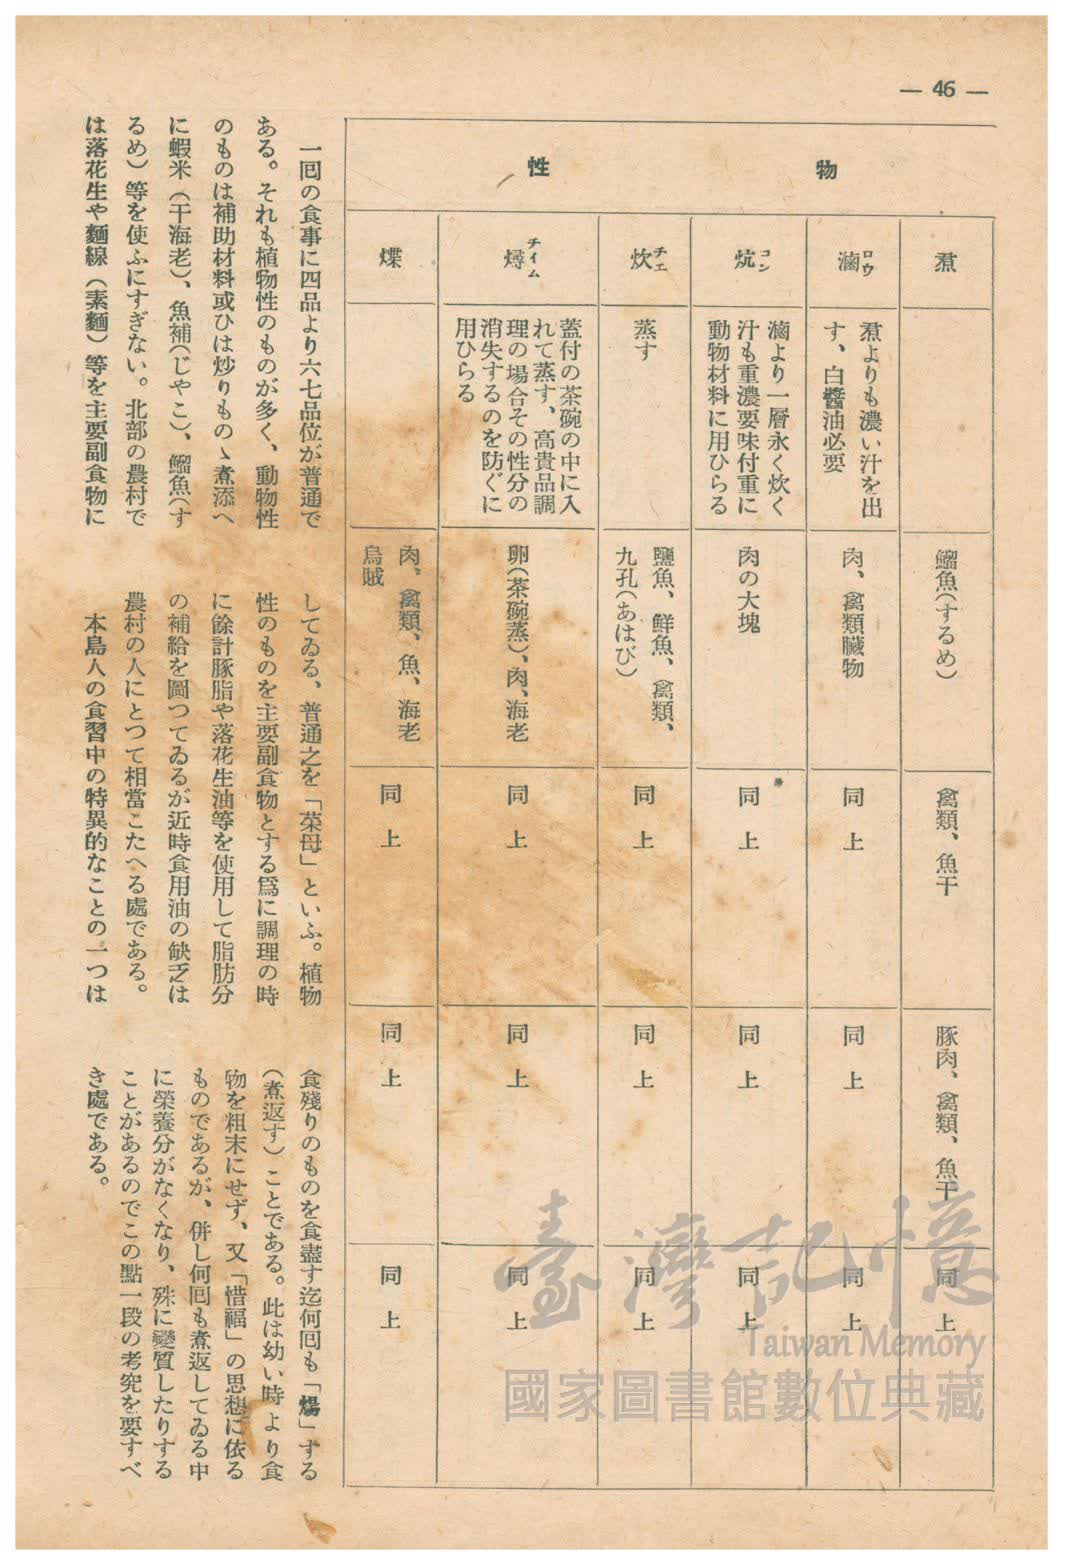 — 46 —
物
性
煮
鰡魚(するめ)
禽類、魚干
豚肉、禽類、魚干
同上
滷
ロウ
煮よりも濃い汁を出
す、白醬油必要
肉、禽類臓物
同上
同上
同上
炕
コン
滷より一層永く炊く
汁も重濃要味付重に
動物材料に用ひらる
肉の大塊
同上
同上
同上
炊
チエ
蒸す
鹽魚、鮮魚、禽類、
九孔(あはび)
同上
同上
同上
燖
チイム
蓋付の茶碗の中に入
れて蒸す、高貴品調
理の場合その性分の
消失するのを防ぐに
用ひらる
卵(茶碗蒸)、肉、海老
同上
同上
同上
煠
肉、禽類、魚、海老
烏賊
同上
同上
同上
一囘の食事に四品より六七品位が普通で
ある。それも植物性のものが多く、動物性
のものは補助材料或ひは炒りものゝ煮添へ
に蝦米(干海老)、魚補(じやこ)、鰡魚(す
るめ)等を使ふにすぎない。北部の農村で
は落花生や麵線(素麵)等を主要副食物に
してゐる、普通之を「菜母」といふ。植物
性のものを主要副食物とする爲に調理の時
に餘計豚脂や落花生油等を使用して脂肪分
の補給を圖つてゐるが近時食用油の缺乏は
農村の人にとつて相當こたへる處である。
本島人の食習中の特異的なことの一つは
食殘りのものを食盡す迄何囘も「煬」する
(煮返す)ことである。此は幼い時より食
物を粗末にせず、又「惜福」の思想に依る
ものであるが、併し何囘も煮返してゐる中
に榮養分がなくなり、殊に變質したりする
ことがあるのでこの點一段の考究を要すべ
き處である。
臺灣記憶
Taiwan Memory
國家圖書館數位典藏